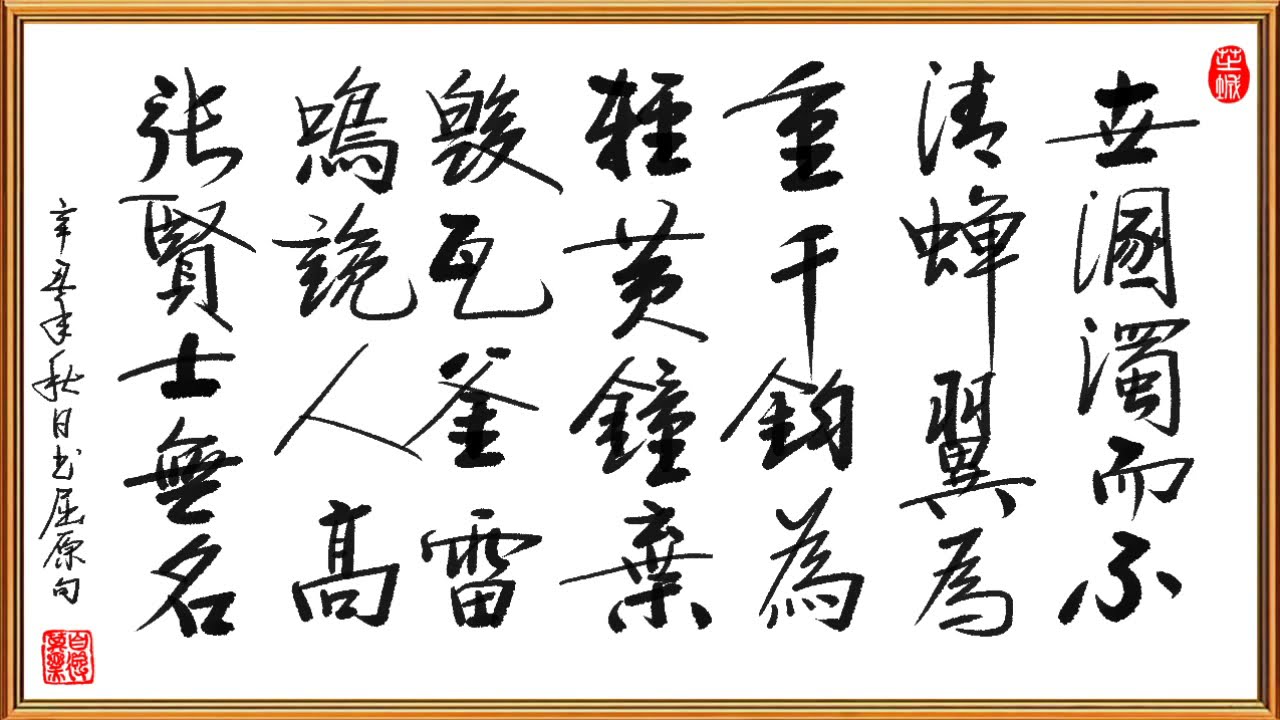 世溷濁而不
清蟬翼為
重千鈞為
輕黄鐘棄
毀瓦釜雷
鳴讒人高
张賢士無名
辛丑年秋日书屈原句